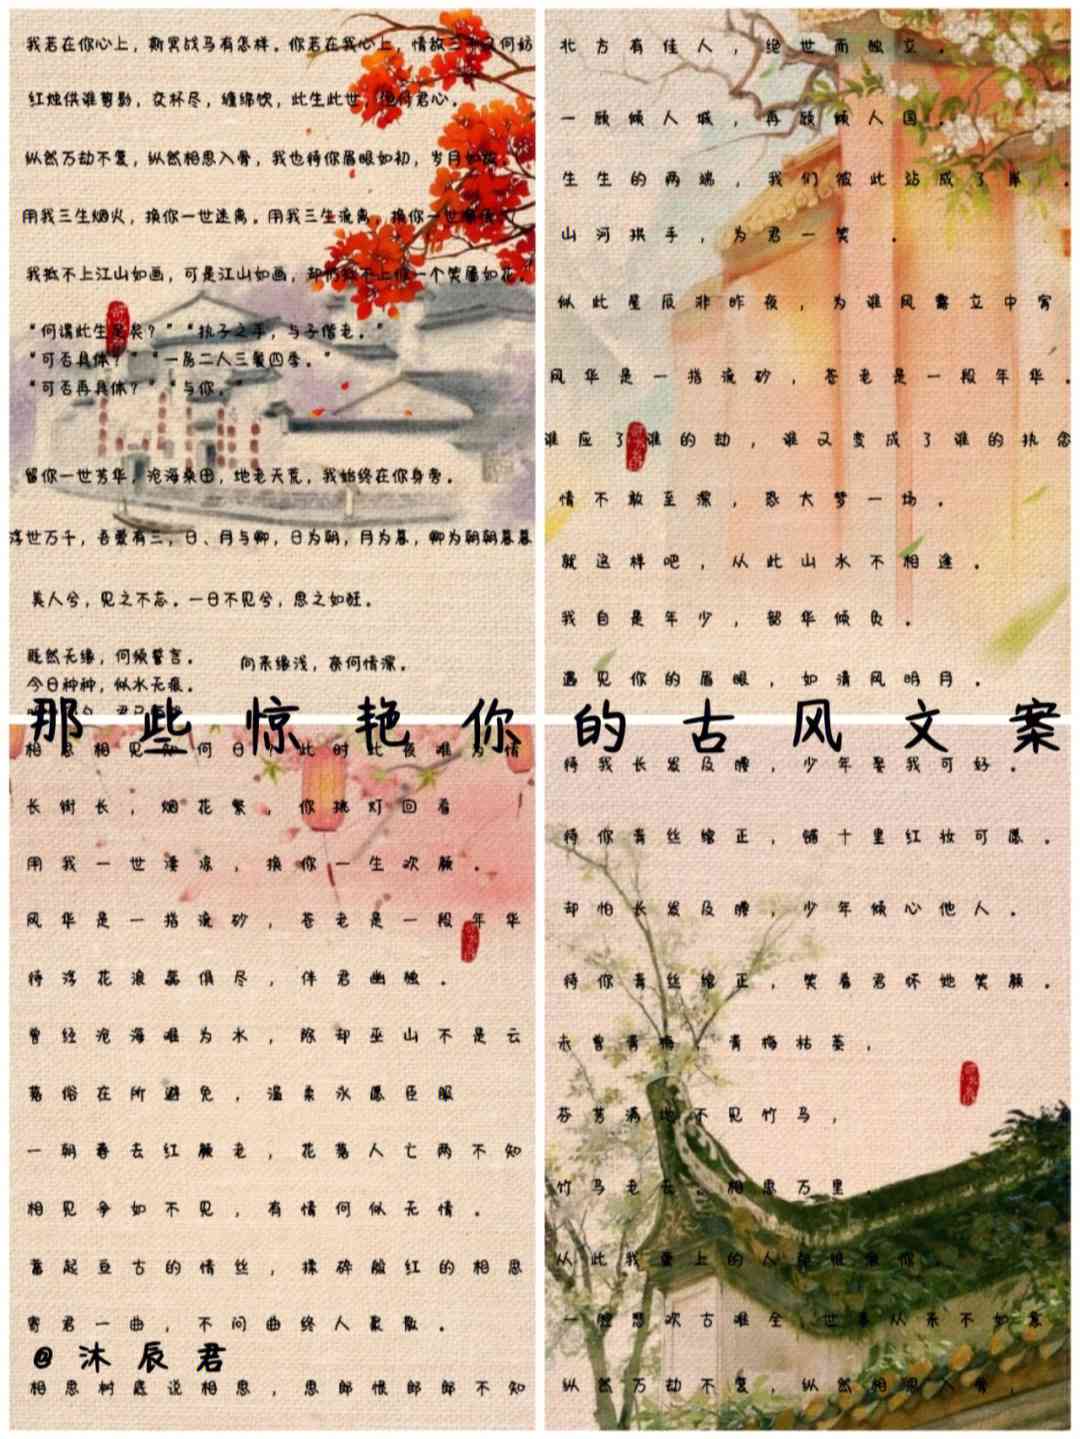 我若在你心上，斯冥战马有怎样。你若在我心上，情敌三千又何妨
红烛供谁剪影，交杯尽，缠绵饮，此生此世，绝付君心。
纵然万劫不复，纵然相思入骨，我也待你眉眼如初，岁月如故
用我三生烟火，换你一世迷离。用我三生流离，换你一世
我抵不上江山如画，可是江山如画，却仍抵不上你一个笑靥如花。
“何谓此生足矣？”“执子之手，与子偕老。”
“可否具体？”“一房二人三餐四季。”
“可否再具体？”“与你。”
留你一世芳华，沧海桑田，地老天荒，我始终在你身旁。
浮世万千，吾爱有三，日、月与卿，日为朝，月为暮，卿为朝朝暮暮
美人兮，见之不忘。一日不见兮，思之如狂。
既然无缘，何须誓言。
今日种种，似水无痕。
向来缘浅，奈何情深。
北方有佳人，绝世而独立。
一顾倾人城，再顾倾人国。
生生的两端，我们彼此站成了岸。
山河拱手，为君一笑。
似此星辰非昨夜，为谁风露立中宵
风华是一指流砂，苍老是一段年华。
谁应了谁的劫，谁又变成了谁的执念
情不敢至深，恐大梦一场。
就这样吧，从此山水不相逢。
我自是年少，韶华倾负。
遇见你的眉眼，如清风明月。
那些惊艳你的古风文案
相思相见知何日？此时此夜难为情
长街长，烟花繁，你挑灯回看
用我一世凄凉，换你一生欢颜。
风华是一指流砂，苍老是一段年华
待浮花浪蕊俱尽，伴君幽独。
曾经沧海难为水，除却巫山不是云
落俗在所避免，温柔永愿臣服
一朝春去红颜老，花落人亡两不知
相见争如不见，有情何似无情。
蓄起亘古的情丝，揉碎脸红的相思
寄君一曲，不问曲终人聚散。
@沐辰君
相思树底说相思，思郎恨郎郎不知
待我长发及腰，少年娶我可好。
待你青丝绾正，铺十里红妆可愿。
却怕长发及腰，少年倾心他人。
待你青丝绾正，笑看君怀她笑颜。
未曾青梅，青梅枯萎，
芬芳满地不见竹马，
竹马老去，相思万里。
从此我爱上的人都很像你。
一腔悲欢古难全，世事从来不如意
纵然万劫不复，纵然相思入骨，